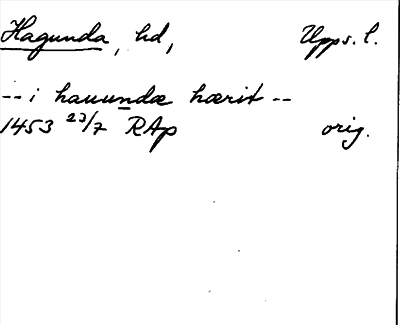 Hagunda, hd, Upps. l.
-- i hauundæ hærit --
1453 23/7 RAp orig.